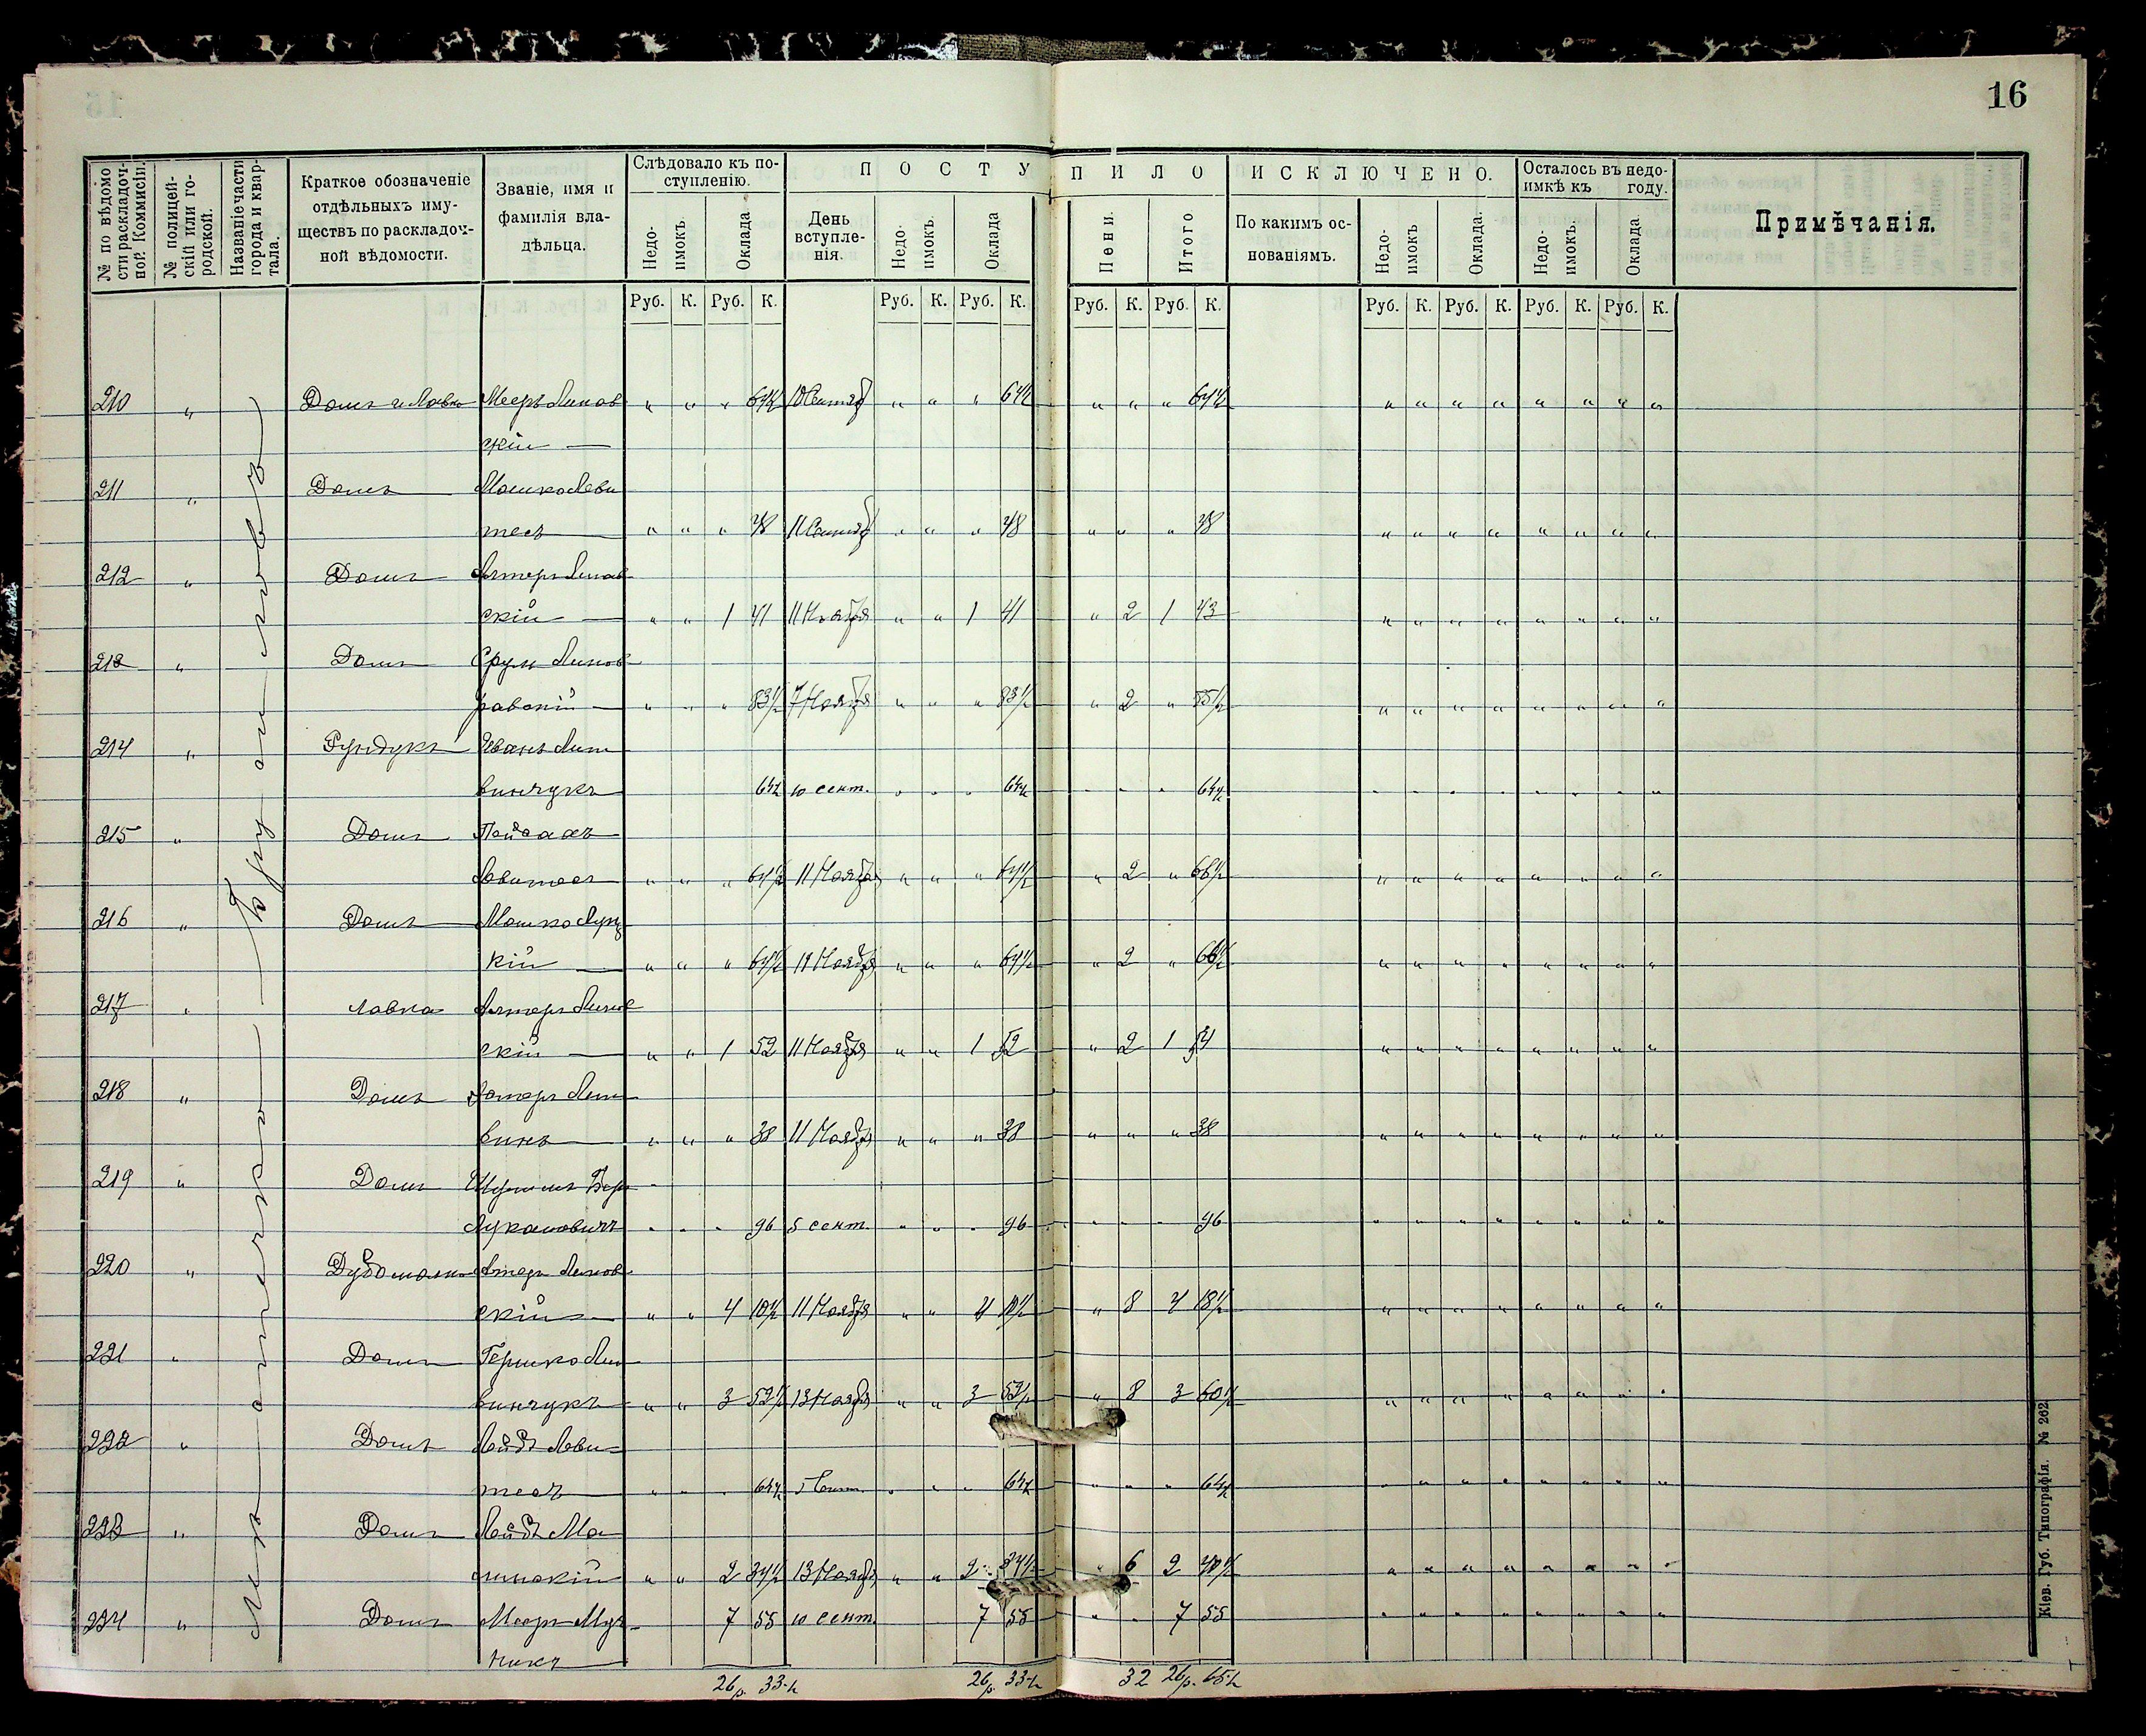 16
№ по вѣдомо
сти раскладоч-
ной Коммисіи.
№ полицей-
скій или го-
родской.
Названіе части
города и квар-
тала.
Краткое обозначеніе
отдѣльныхъ иму-
ществъ по расkладоч-
ной вѣдомости.
Званіе, имя и
фамилія вла-
дѣльца.
Слѣдовало къ по-
ступленію.
Недо-
имокъ.
Оклада.
ПОСТУПИЛО
День
вступле-
нія.
Недо-
имокъ.
Оклада
Пени.
Итого
ИСКЛЮЧЕНО.
По какимъ ос-
нованіямъ.
Недо-
имокъ
Оклада.
Осталось въ недо-
имкѣ къ году.
Недо-
имокъ.
Оклада.
Примѣчанія.
Руб. К. Руб. К. Руб. К. Руб. К. Руб. К. Руб. К. Руб. К. Руб. К. Руб. К. Руб. К.
210 " Домъ и Лавка Мееръ Линов
скій — " " " 64½ 10 Сентяб " " " 64½ " " " 64½ " " " " " " " "
211 " Домъ Мошко Леви
тесъ " " " 48 11 Сентяб " " " 48 " " " 48 " " " " " " " "
212 " Домъ Алтеръ Линов
скій — " " 1 41 11 Ноября " " 1 41 " 2 1 43 " " " " " " " "
213 " Домъ Срулъ
" " " 83½ 7 Ноября " " " 83½ " 2 " 85½ " " " " " " " "
214 " Рундукъ Иванъ Лит
винчукъ 64½ 10 сент. " " " 64½ " " " 64½ " " " " " " " "
215 " Домъ Пейсахъ
Левитесъ " " " 64½ 11 Ноября " " " 64½ " 2 " 66½ " " " " " " " "
216 " Домъ Мошко Луц
кій — " " " 64½ 11 Ноября " " " 64½ " 2 " 66½ " " " " " " " "
217 " Лавка Алтеръ Линов
скій — " " 1 52 11 Ноября " " 1 52 " 2 1 54 " " " " " " " "
218 " Домъ Лит
винъ " " " 38 11 Ноября " " " 38 " " " 38 " " " " " " " "
219 " Домъ Бер
Лукановичъ " " " 96 5 сент. " " " 96 " " " 96 " " " " " " " "
220 " Алтеръ Линов
скій — " " 4 10½ 11 Ноября " " 4 10½ " 8 4 18½ " " " " " " " "
221 " Домъ Гершко Лит
винчукъ " " 3 52½ 13 Ноября " " 3 52½ " 8 3 60½ " " " " " " " "
222 " Домъ Лейба Леви-
тесъ " " " 64½ 5 Сент. " " " 64½ " " " 64½ " " " " " " " "
223 " Домъ Лейба Ма
линскій " " 2 34½ 13 Ноября " " 2 34½ " 6 2 40½ " " " " " " " "
224 " Домъ Мееръ Муч-
никъ 7 55 10 сент. 7 55 " " 7 55 " " " " " " " "
26 р. 33½ 26 р. 33½ 32 26 р. 65½
Кіев. Губ. Типографія. № 262